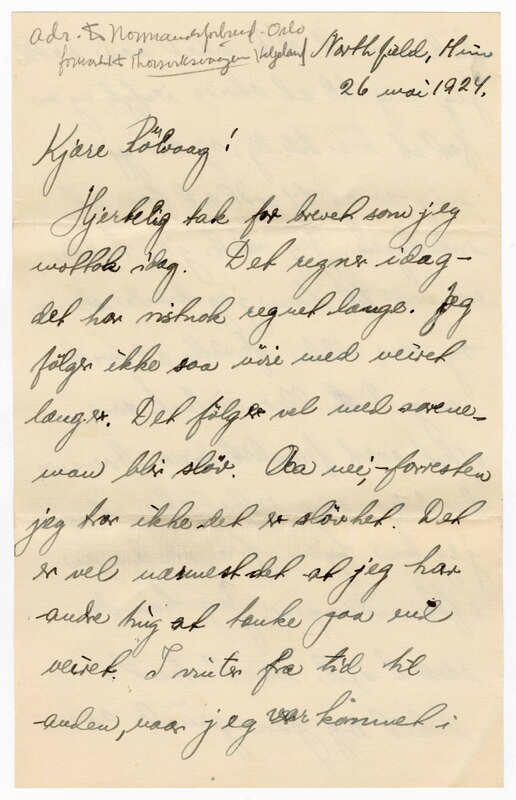 adr. t. Normandsforbund - Oslo
Northfield, Minn
26 mai 1924.
Kjære Rölvaag!
Hjertelig tak for brevet som jeg
mottok idag. Det regner idag -
det har vistnok regnet længe. Jeg
følger ikke saa nöie med veiret
længer. Det følger vel med aarene -
man blir slöv. Aa nei, - forresten
jeg tror ikke det er slövhet. Det
er vel nærmest det at jeg har
andre ting at tænke paa end
veiret. I vinter fra tid til
anden, naar jeg var kommet i